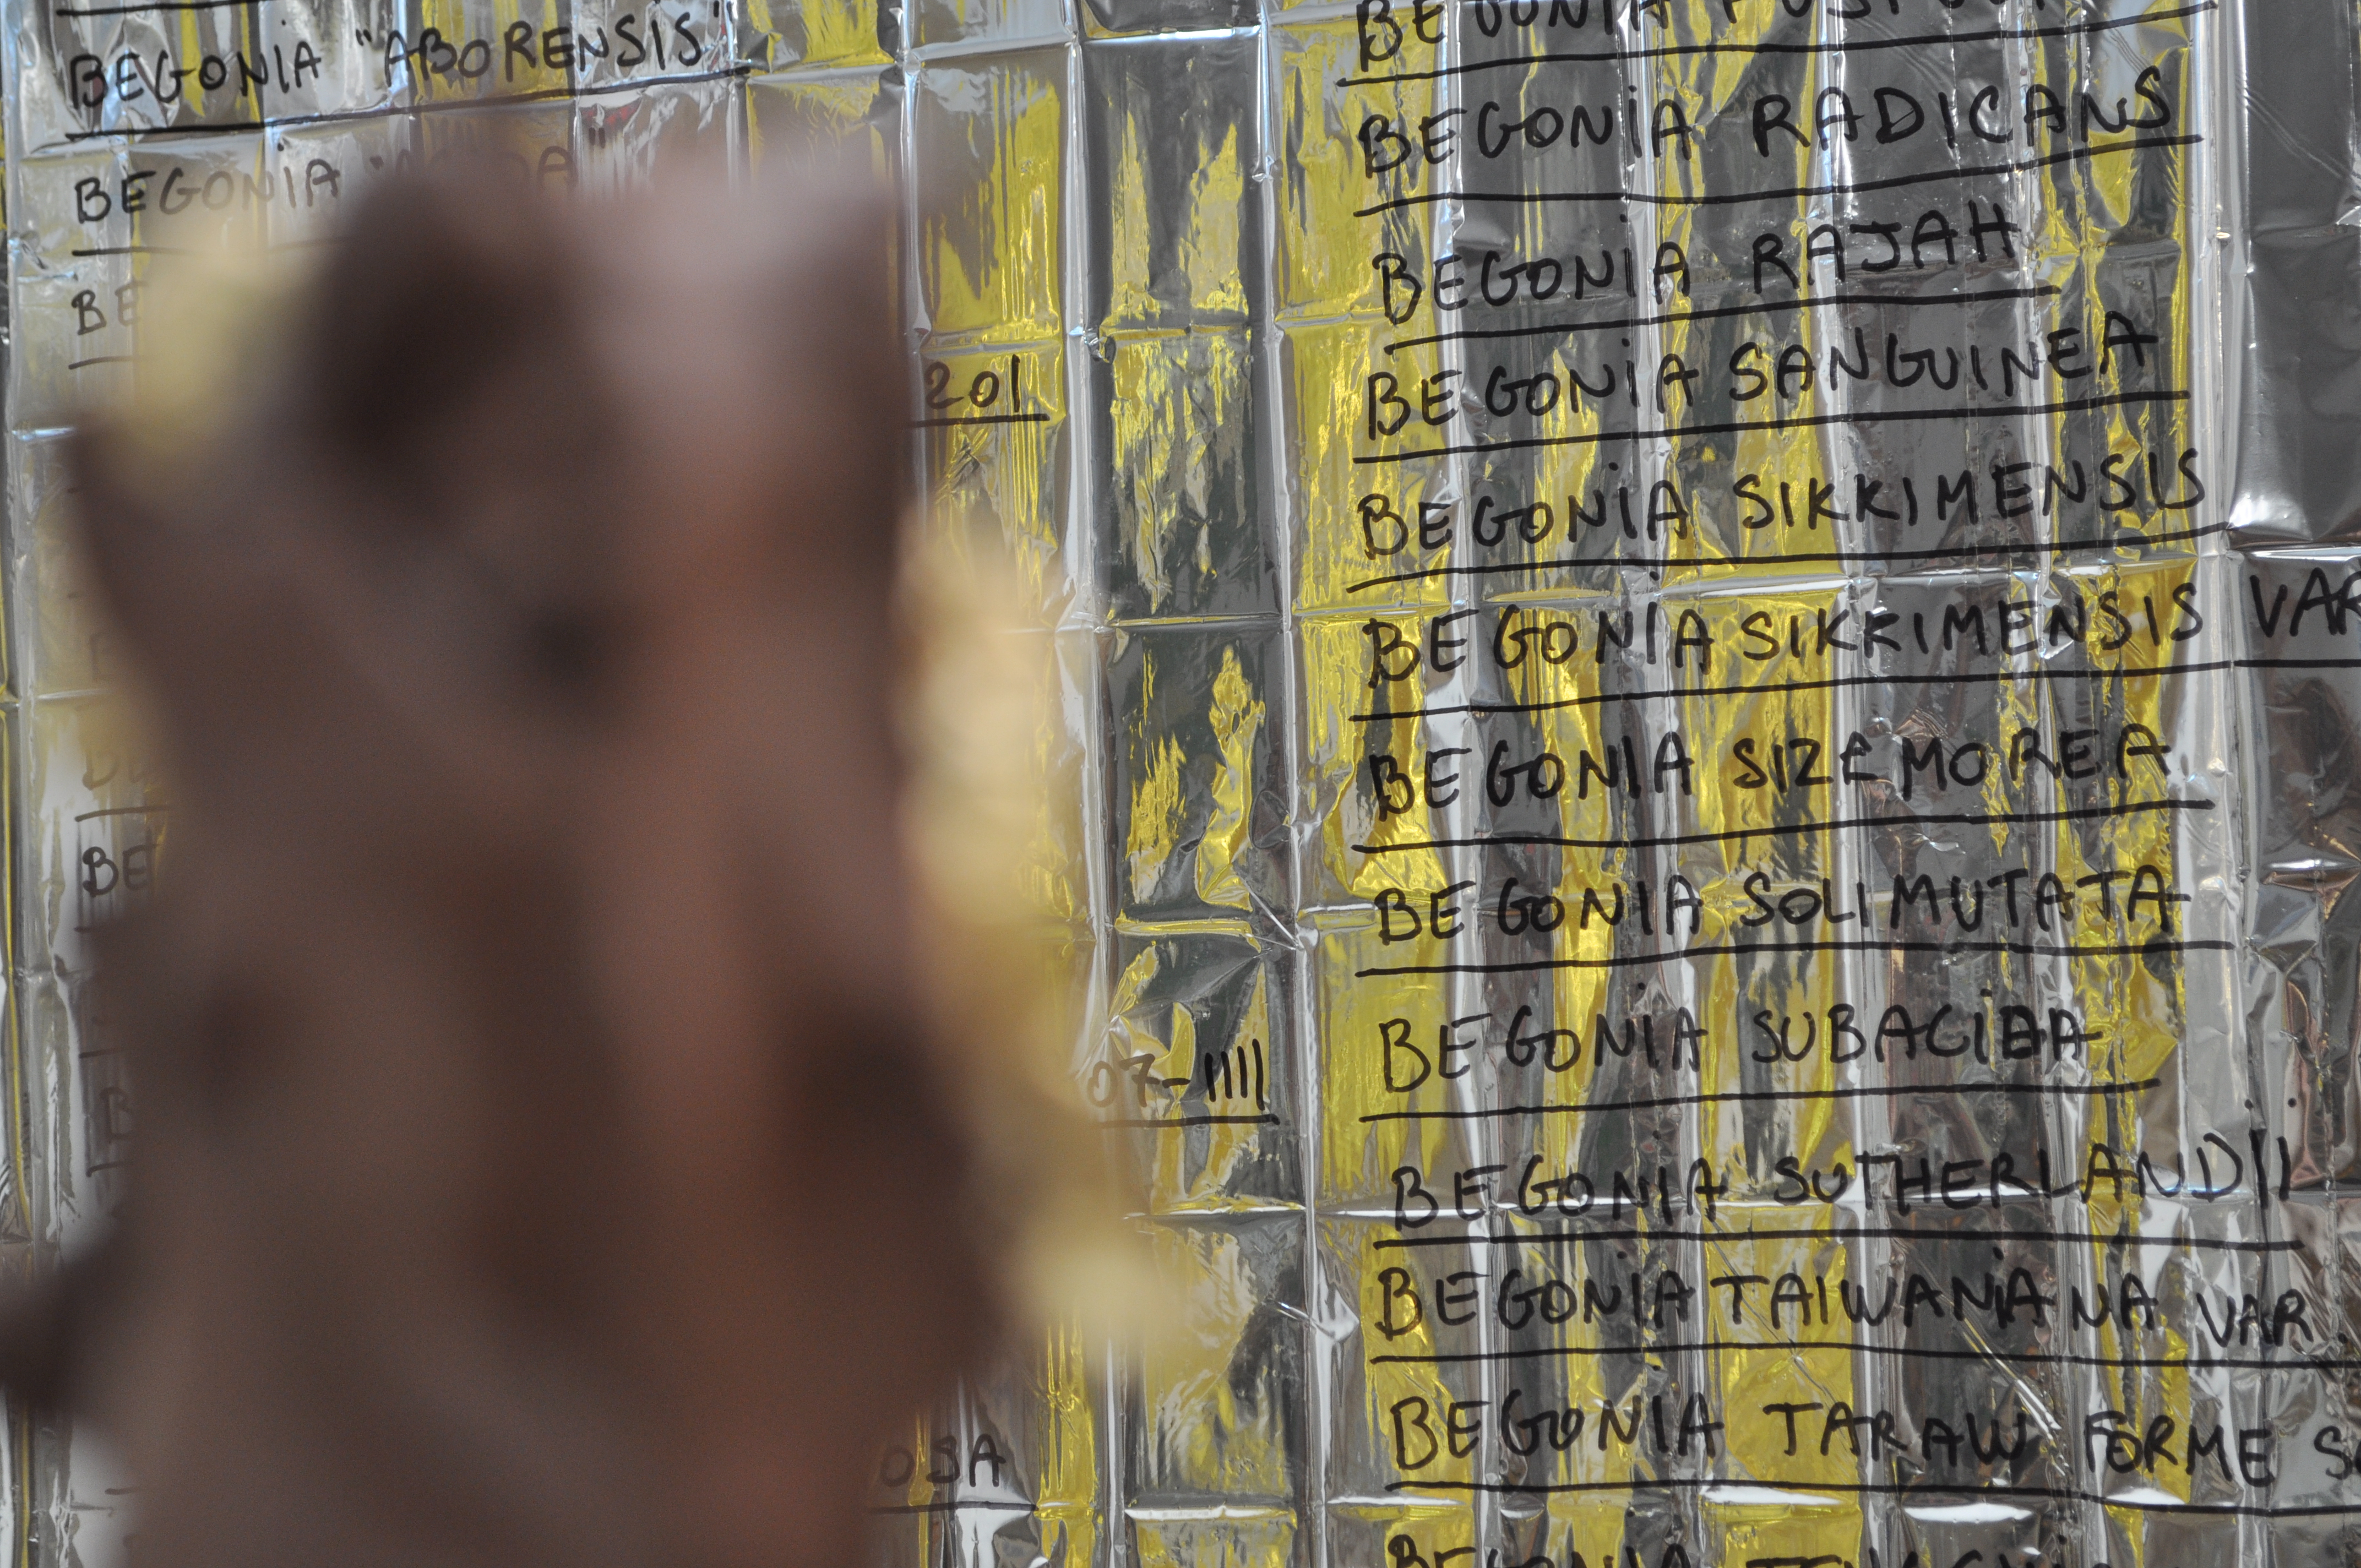 BEGONIA "ABORENSIS"
BEGONIA
201
07-1111
OSA
BEGONIA
BEGONIA RADICANS
BEGONIA RAJAH
BEGONIA SANGUINEA
BEGONIA SIKKIMENSIS
BEGONIA SIKKIMENSIS VAR
BEGONIA SIZEMOREA
BEGONIA SOLIMUTATA
BEGONIA SUBACIDA
BEGONIA SUTHERLANDII
BEGONIA TAIWANIANA VAR.
BEGONIA TARAW FORME
BEGONIA